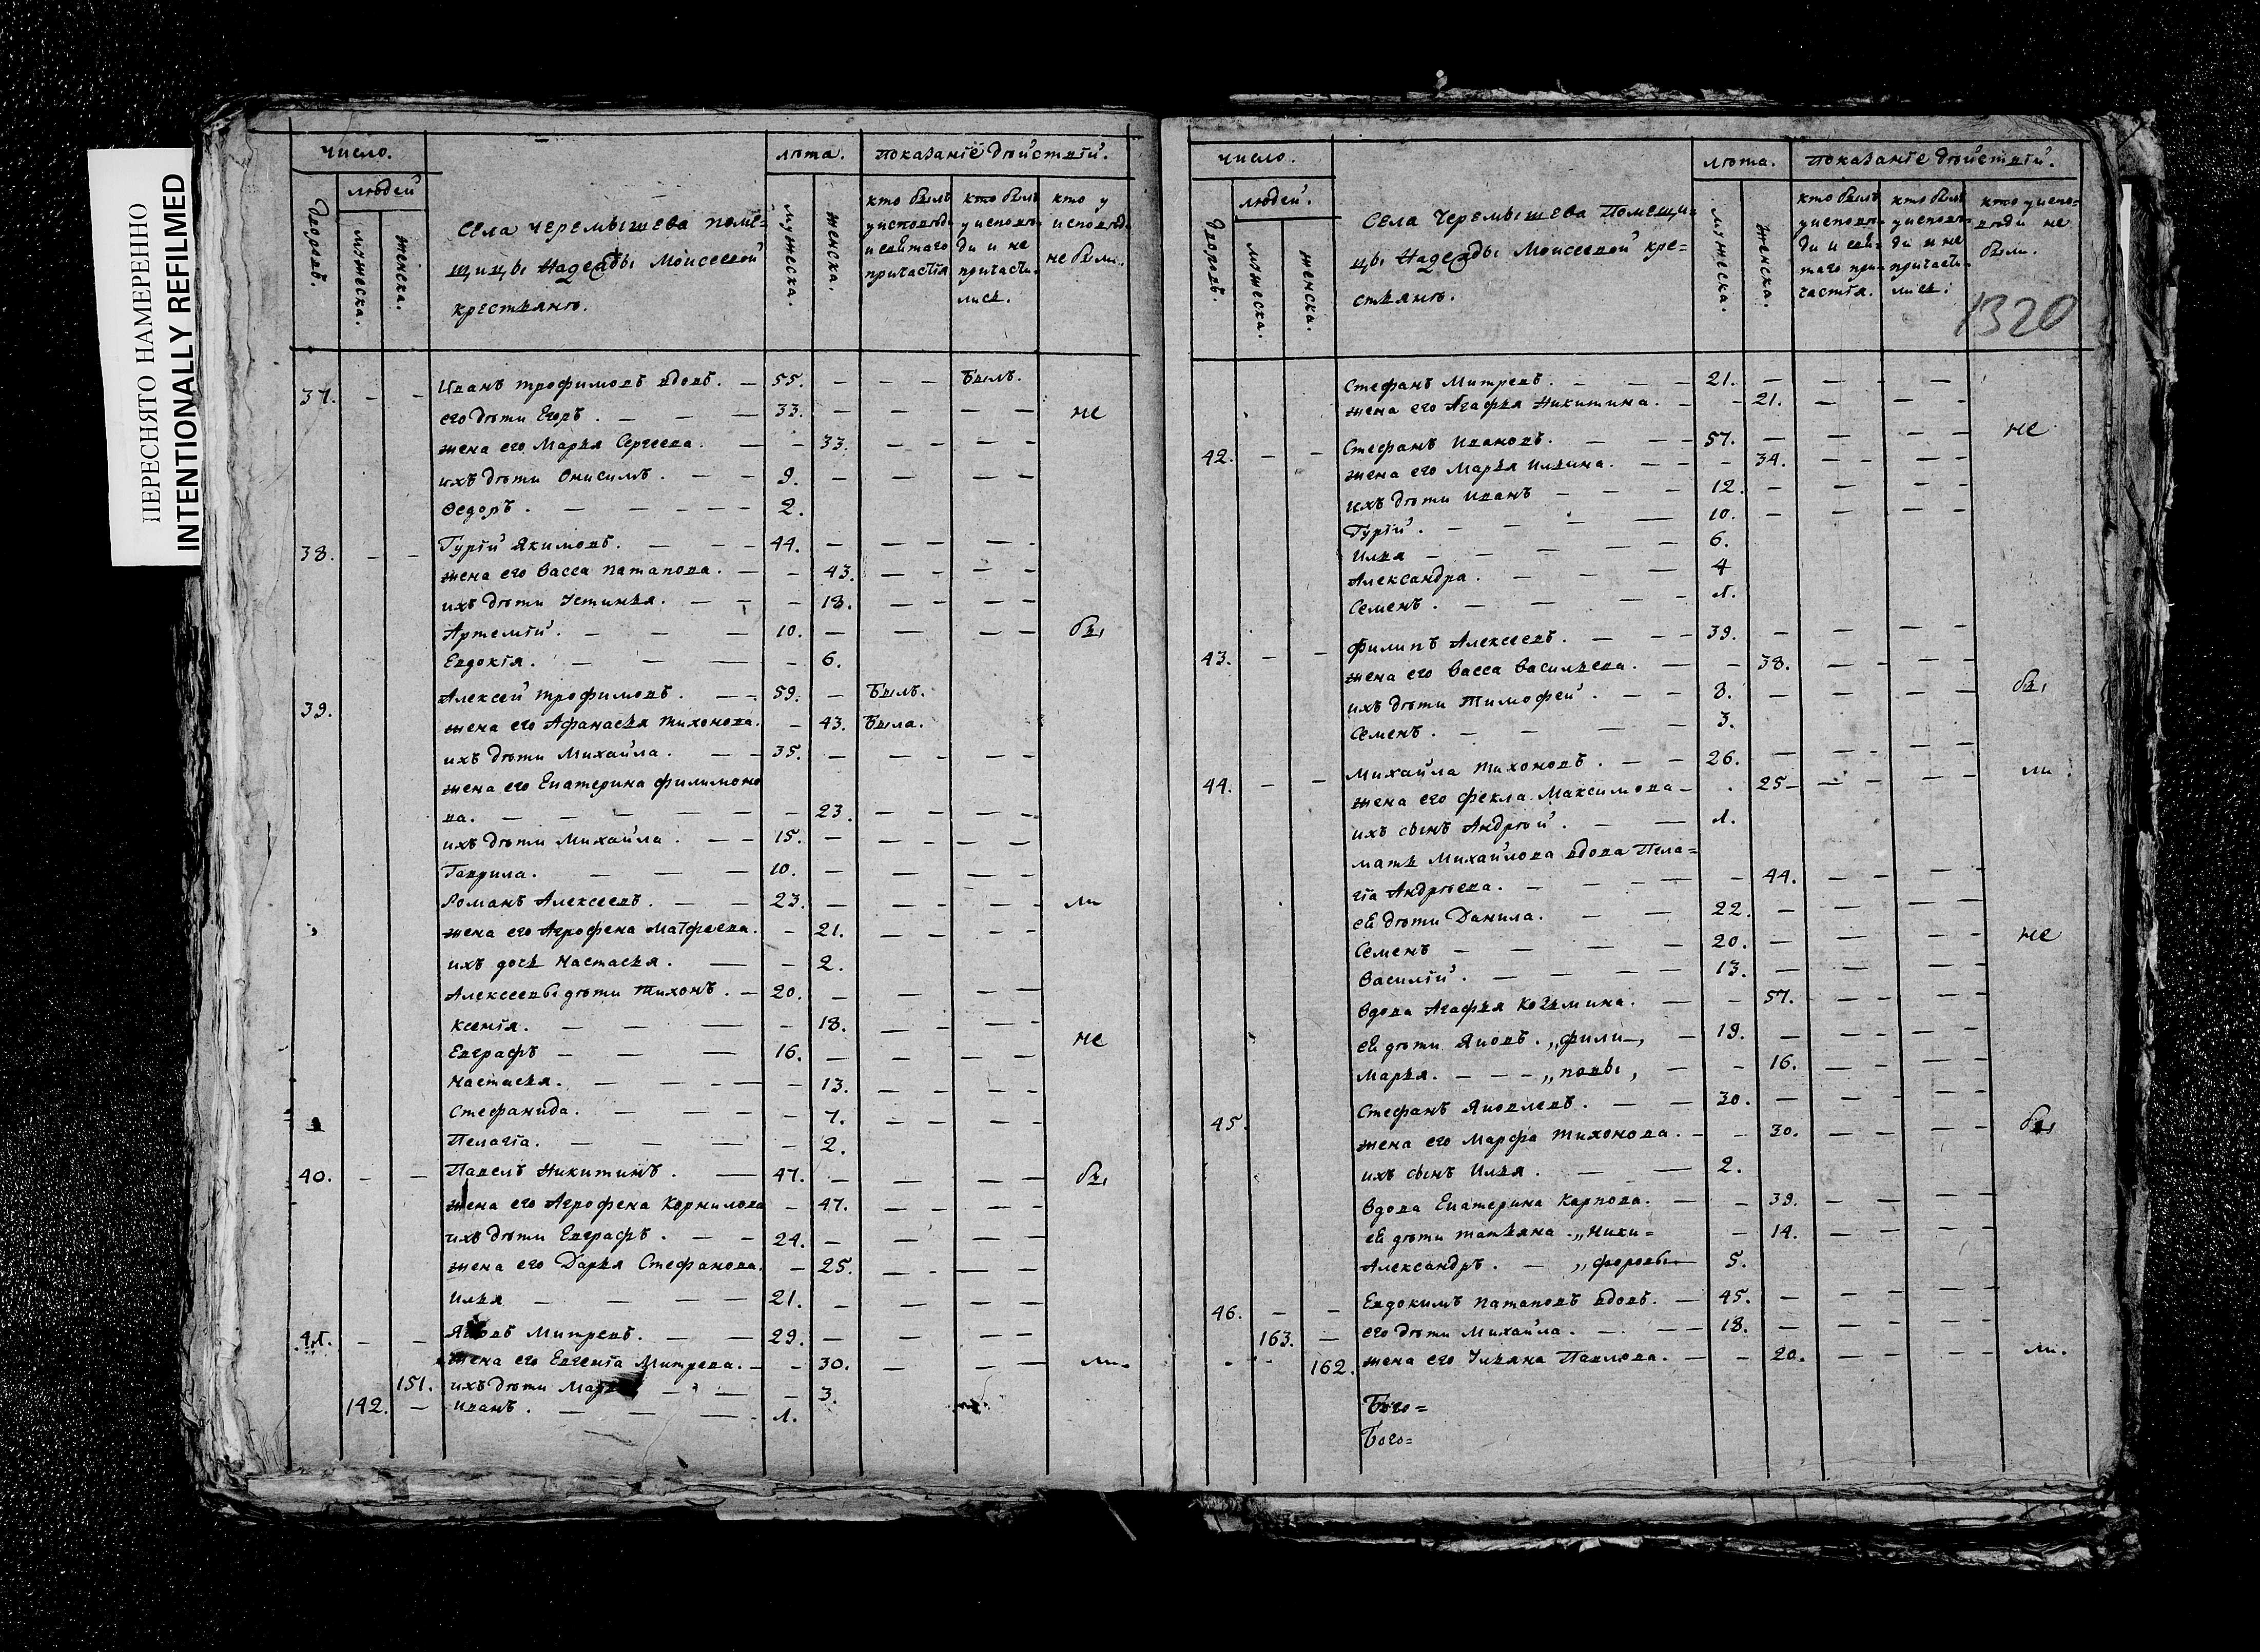 ПЕРЕСНЯТО НАМЕРЕННО
INTENTIONALLY REFILMED
число.
людей
дворовъ.
мужеска.
женска.
села Черемышева поме=
щицы Надежды Моисеевой
крестьянъ.
лѣта.
мужеска.
женска.
показанїе дѣйствїй.
кто былъ у исповѣди и святаго причастїя
кто былъ у исповѣди и не причастились.
кто у исповѣди не были.
37. — — Иванъ трофимовъ вдовъ. — 55. — — — Былъ.
его дѣти Егоръ. — — — 33. — — — — не
жена его Марья Сергеева. — — 33. — — — —
ихъ дѣти Онисимъ. — — 9. — — — — —
Ѳедоръ. — — — — — 2.
38. — — Гурїй Якимовъ. — — — 44. — — — — —
жена его Васса Патапова. — — 43. — — — —
ихъ дѣти Устинья. — — — 18. — — — —
Артемїй. — — — 10. — — — — бы
Евдокїя. — — — — 6.
39. Алексей трофимовъ. — — 59. — Былъ.
жена его Афанасья тихонова. — 43. Была.
ихъ дѣти Михайла. — — 35. — — — — —
жена его Екатерина филимоно
ва. — — — — — — 23. — — — —
ихъ дѣти Михайла. — — 15. — — — — —
Гаврила. — — — 10. — — — —
Романъ Алексеевъ. — — 23. — — — — — ли
жена его Агрофена Матфеева. — 21. — — — —
ихъ дочь Настасья. — — 2.
Алексеевы дѣти тихонъ. — 20. — — — —
Ксенїя. — — — — 18. — — — —
Евграфъ — — — 16. — — — — — не
Настасья. — — — — — 13. — — — —
Стефанида. — — — — 7. — — — —
Пелагїа. — — — — 2.
40. — — Павелъ Никитинъ. — 47. — — — — — бы
жена его Агрофена Корнилова — 47. — — — —
ихъ дѣти Евграфъ. — — 24. — — — —
жена его Дарья Стефанова. — 25. — — — —
Илья — — — — 21. — — — —
41. — — Яковъ Митревъ. — — 29. — — — —
жена его Евгенїа Митрева. — — 30. — — — ли.
151. ихъ дѣти — — — 3.
142. — Иванъ. — — — 1.
число.
людей.
дворовъ.
мужеска.
женска.
села Черемышева Помещи=
цы Надежды Моисеевой кре=
стьянъ.
лѣта.
мужеска.
женска.
показанїе дѣйствїй.
кто былъ у исповѣди и святаго причастїя.
кто былъ у исповѣди и не причастились.
кто у исповѣди не были.
1320
Стефанъ Митревъ. — — — 21. — — — —
жена его Агафья Никитина. — — 21. — — —
42. — — Стефанъ Ивановъ. — — — 57. — — — — не
жена его Марья Ильина. — — — 34. — — — —
ихъ дѣти Иванъ — — — 12. — — — —
Гурїй. — — — — 10. — — — —
Илья — — — — — 6.
Александра. — — — 4
Семенъ. — — — — 1.
43. — — филипъ Алексеевъ. — — — 39. — — — —
жена его Васса Васильева. — — 38. — — — —
ихъ дѣти Тимофей. — — 8. — — — — бы
Семенъ. — — — — 3.
44. — — Михайла тихоновъ. — — — 26. — — — — —
жена его фекла Максимова — . 25 — — — — — ли
ихъ сынъ Андрѣй. — — 1.
мать Михайлова вдова Пела=
гїа Андрѣева. — — — — — 44. — — — —
ей дѣти Данила. — — 22. — — — —
Семенъ — — — — 20. — — — — не
Василїй. — — — — 13. — — — —
вдова Агафья Козьмина. — — 57. — — — —
ей дѣти Яковъ. „фили—, — 19. — — — — —
Марья. — — — „повы, — — 16. — — — —
45. Стефанъ Яковлевъ. — — 30. — — — — —
жена его Марфа тихонова. — — 30. — — — — бы
ихъ сынъ Илья. — — 2.
вдова Екатерина Карпова. — — 39. — — — —
ей дѣти татьяна. „Ники= — 14. — — — —
Александръ. — „форовы — 5.
46. — — Евдокимъ Патаповъ вдовъ. — 45. — — — —
163. — его дѣти Михайла. — — — 18. — — — —
162. жена его Ульяна Павлова. — — 20. — — — — ли.
Бого=
Бого=